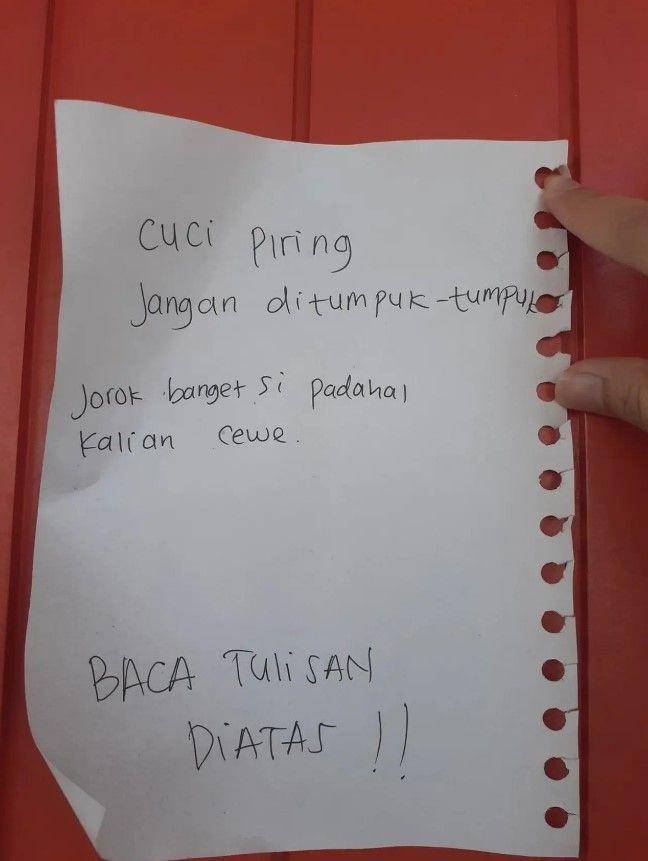 Cuci piring
Jangan ditumpuk-tumpuk
Jorok banget si padahal
kalian cewe.
BACA TULISAN
DIATAS !!